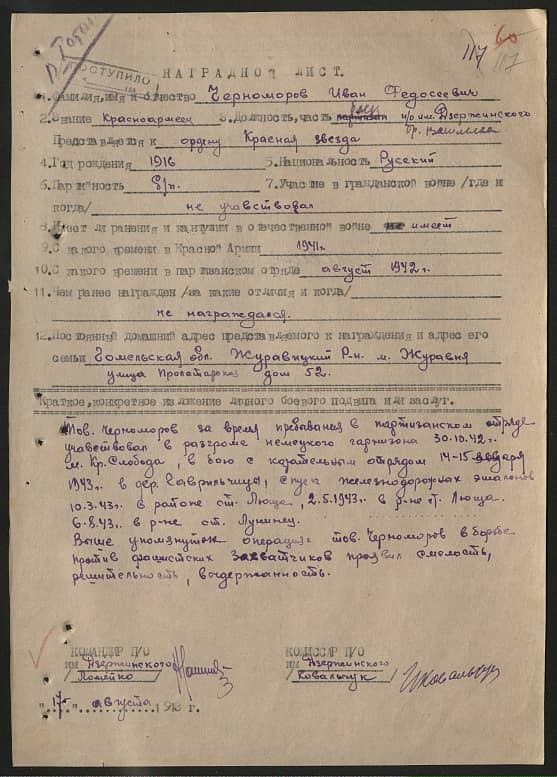 117
60
117
ПОСТУПИЛО
НАГРАДНОЙ ЛИСТ.
1. Фамилия, имя и отчество Черноморов Иван Федосеевич
2. Звание Красноармеец 3. Должность, часть партизан п/о им. Дзержинского
Представляется к ордену Красная звезда
4. Год рождения 1916 5. Национальность Русский
6. Партийность б/п. 7. Участие в гражданской войне /где и
когда/ не учавствовал
8. Имеет ли ранения и контузии в отечественной войне не имеет
9. С какого времени в Красной Армии 1941г.
10. С какого времени в партизанском отряде август 1942г.
11. Чем ранее награжден /за какие отличия и когда/
не награждался.
12. Постоянный домашний адрес представляемого к награждения и адрес его
семьи Гомельская обл. Журавицкий Р-н. м.
улица дом 52.
Краткое, конкретное изложение личного боевого подвига или заслуг.
Тов. Черноморов за время пребывания в партизанском отряде
учавствовал в разгроме немецкого гарнизона 30.10.42г.
м. Кр. Слобода, в бою с карательным отрядом 14-15 января
1943г. в дер. Гаврильчицы, спуск железнодорожных эшалонов
10.3.43г. в районе ст. Люща, 2.5.1943г. в р-не ст. Люща.
6.8.43г. в р-не ст. Лунинец.
Выше упомянутых операциях тов. Черноморов в борьбе
против фашистских захватчиков проявил смелость,
решительность, выдержанность.
КОМАНДИР П/О
им Дзержинского
/Ломейко
КОМИССАР П/О
им Дзержинского
/Ковальчук
Ковальчук
"17" августа 1943 г.